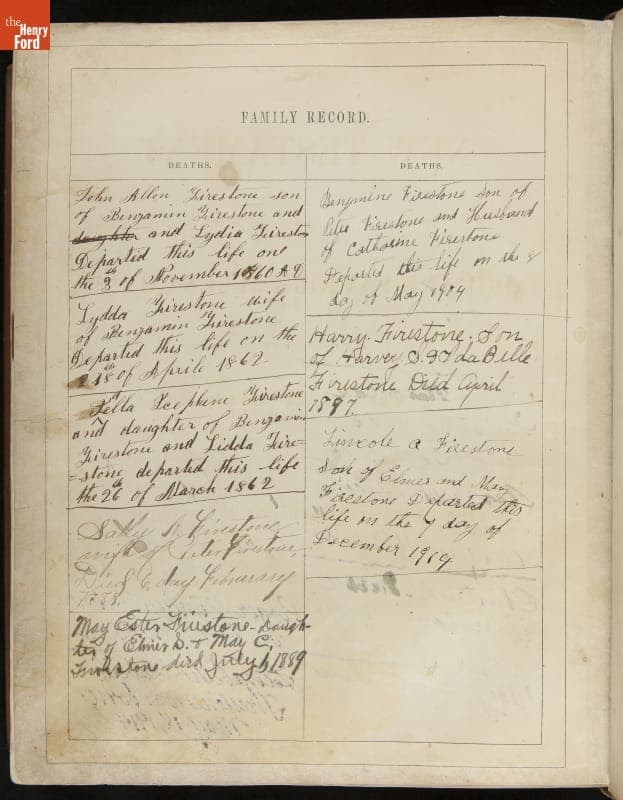 the
Henry
Ford
FAMILY RECORD.
DEATHS.
John Allen Firestone son
of Benjamin Firestone and
daughter and Lydia Firestone
Departed this life on
the 3th of November 1860 A D
Lydda Firestone wife
of Benjamin Firestone
Departed this life on the
18th of Aprile 1862
and daughter of Benjamin
Firestone and Lidda Fire-
-stone departed this life
the 26th of March 1862
Sally A. Firestone
wife of Peter Firestone,
Died 6 day Februrary
May Ester Firestone Daugh-
ter of Elmer S. & May C.
Firestone died July 1, 1889
DEATHS.
Benjmine Firestone son of
Peter Firestone and Husband
of Catharine Firestone
Departed this life on the 8
day of May 1904
Harry Firestone, Son
of Harvey S. & IdaBelle
Firestone Died April
1897
Lincole a Firestone
Son of Elmer and May
Firestone Departed this
life on the 7 day of
December 1904